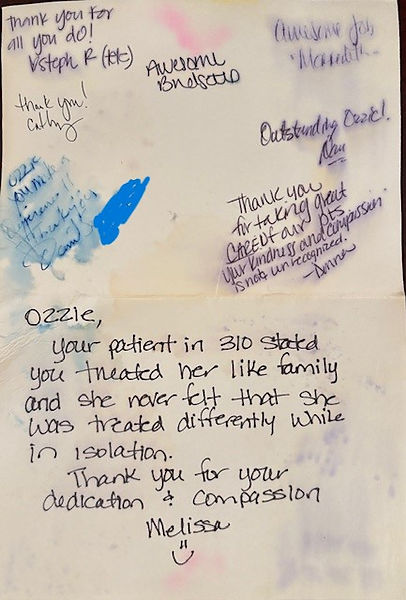 Thank you for
all you do!
Steph R (tele)
Awesome
Awesome Job
Meredith
Thank you!
Cathy
Outstanding Ozzie!
Ozzie
you make a
difference!
Thank you
for taking great
CARE of our pts.
Your kindness and compassion
is not unrecognized.
-Donna
Ozzie,
Your patient in 310 stated
you treated her like family
and she never felt that she
was treated differently while
in isolation.
Thank you for your
dedication & compassion
Melissa